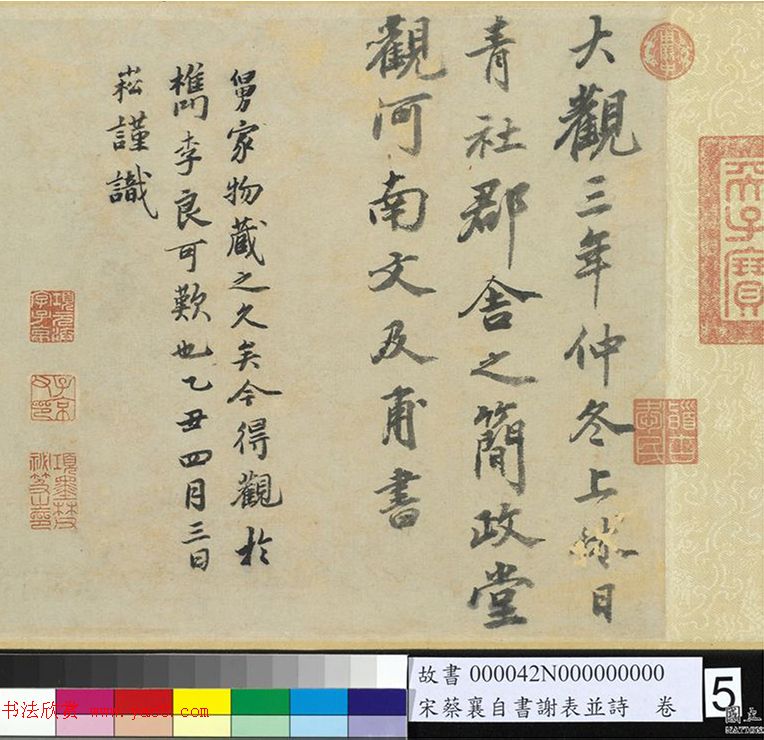 大觀三年仲冬上日
青社郡舍之簡政堂
觀河南文及甫書
舅家物藏之久矣今得觀於
檇李良可歎也乙丑四月三日
崧謹識
子京父印
故書 000042N000000000
宋蔡襄自書謝表並詩 卷
5
國立
书法欣赏 www.yac8.com